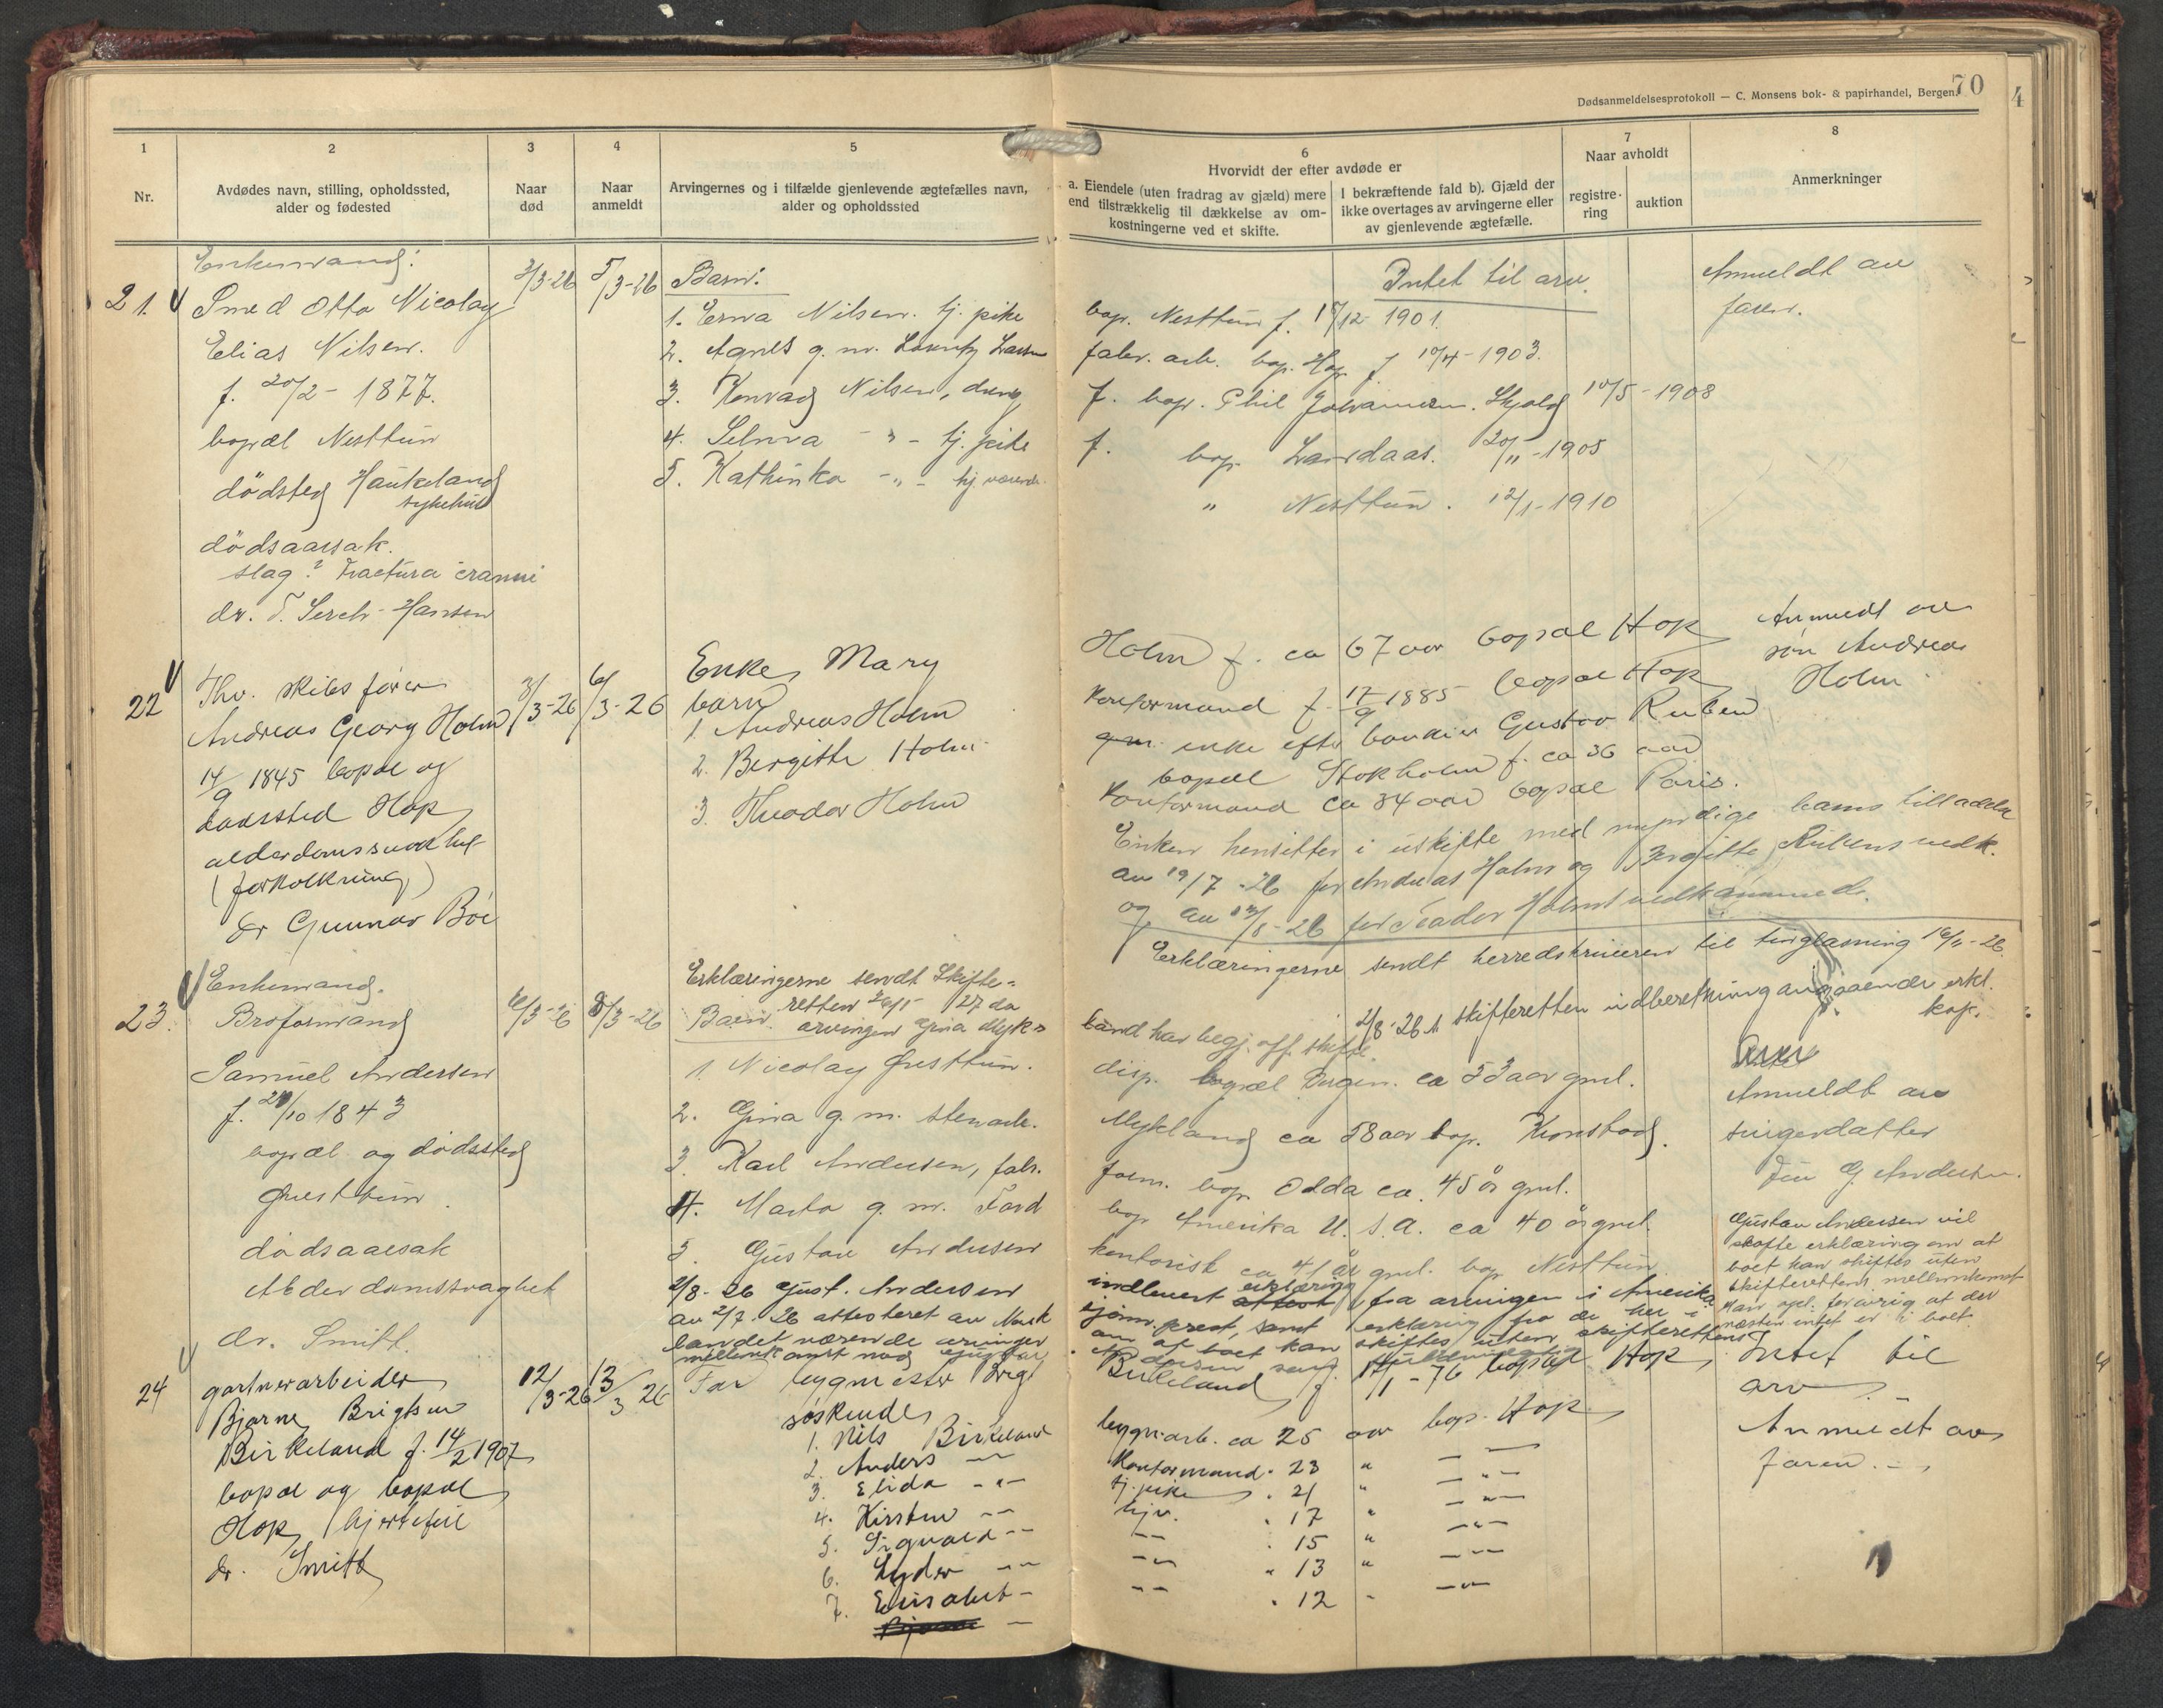 70
Dødsanmeldelsesprotokoll — C. Monsens bok- & papirhandel, Bergen.
4
1
Nr.
2
Avdødes navn, stilling, opholdssted,
alder og fødested
3
Naar
død
4
Naar
anmeldt
5
Arvingernes og i tilfælde gjenlevende ægtefælles navn,
alder og opholdssted
6
Hvorvidt der efter avdøde er
a. Eiendele (uten fradrag av gjæld) mere
end tilstrækkelig til dækkelse av om-
kostningerne ved et skifte.
I bekræftende fald b). Gjæld der
ikke overtages av arvingerne eller
av gjenlevende ægtefælle.
7
Naar avholdt
registre-
ring
auktion
8
Anmerkninger
21.
Enkemand:
Smed Otto Nicolay
Elias Nilsen.
f. 20/2 - 1877.
bopæl Nesttun
dödsted Haukeland
sykehus
dödsaarsak.
slag? Fractura cranii
dr. Lerch-Hansen
3/3-26
5/3-26
Barn:
1. Erna Nilsen. tj. pike
2. Agnes g. m.
3. Konrad Nilsen, dreng
4. Selma - " - tj. pike
5. Kathinka - " - hj. værende
Intet til arv.
bop. Nesttun f. 17/12 1901.
fabr. arb. bop. Hop f 10/4 - 1903.
f. bop. Johannesen. Skjold 10/5 - 1908
f. bop. Landaas. 20/11 - 1905
" Nesttun. 12/1 - 1910
Anmeldt av
faren.
22
Thv. skibsfører
Andreas Georg Holm
14/9 1845 bopæl og
dødssted Hop
alderdomssvakhet
(forkolkning)
dr Gunnar Böe
3/3-26
6/3-26
Enke Mary
barn
1 Andreas Holm
2. Bergitte Holm
3. Theodor Holm
Holm f. ca 67 aar bopæl Hop
Kontormand f. 17/9 1885 bopæl Hop
g m. enke efter bankier Gustav Ruben
bopæl Stokholm f. ca 36 aar
Kontormand ca 34 aar bopæl Paris.
Enken hensitter i uskifte med myndige barns tilladelse
av 19/7 - 26 for Andreas Holm og Birgitte Rubens vedk.
og av for Teador Holms vedkommende.
Erklæringerne sendt herredskriveren til tinglæsning 16/11 - 26.
Anmeldt av
søn Andreas
Holm
23.
Enkemand.
Broformand
Samuel Andersen
f. 20/10 1843
bopæl og dödssted
Øvsttun.
dødsaarsak
Alderdomssvaghet
dr. Smitt.
6/3-26
8/3-26
Erklæringerne sendt Skifte-
retten 26/1 - 27 da
arvingen Gina Myk-
Barn.
1. Nicolay Øvsttun.
2. Gina g. m. stenarb.
3. Karl Andersen, fabr.
4. Marta g. m. Ford
5. Gustav Andersen
2/8 - 26 Gust. Andersen
av 2/7. 26 attesteret av Norsk
landet værende arvinger
2/8-26 skifteretten indberetning angaaende erkl.
kop.
land har begj. off. skifte.
disp. bopæl Bergen. ca 53 aar gml.
Mykland ca 58 aar bop. Kronstad.
form. bop. Odda ca. 45 år gml.
bop Amerika U. S. A. ca 40 år gml.
kontorist ca 41 år gml. bop Nesttun
indlevert erklæring fra arvingen i Amerika
sjöm. prest, samt erklæring fra de her i
om at boet kan skiftes uten skifterettens
Anmeldt av
svigerdatter
Fru G. Andersen.
Gustav Andersen vil
skaffe erklæring om at
boet kan skiftes uten
skifterettens mellemkomst
Han opl. forøvrig at der
næsten intet er i boet.
24
gartnerarbeider
Bjarne Brigtsen
Birkeland f. 14/2 1907
bopæl og bopæl
Hop, hjertefeil
dr. Smitt
12/3-26
13/3 26
Far bygmester Brigt
søskende
1. Nils Birkeland
2. Anders - " -
3. Elida - " -
4. Kirsten - " -
5. Sigvald - " -
6. Lyder - " -
7. Elisabet -
Birkeland f 17/1 - 76 bopæl Hop
bygn. arb. ca 25 aar bop. Hop
Kontormand " 23 " - " -
tj. pike " 21 " - " -
hjv. " 17 " - " -
- " - " 15 " - " -
- " - " 13 " - " -
- " - " 12 " - " -
Intet til
arv.
Anmeldt av
faren.